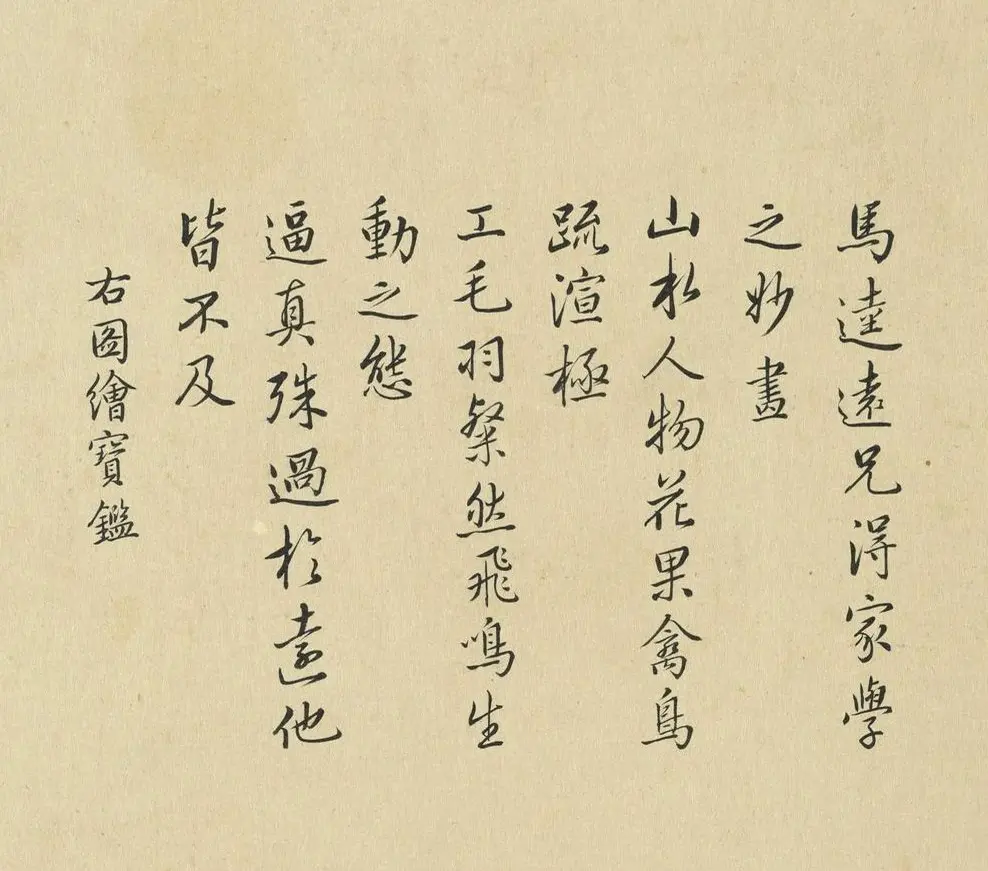 馬逵遠兄得家學
之妙畫
山水人物花果禽鳥
疏渲極
工毛羽粲然飛鳴生
動之態
逼真殊過於遠他
皆不及
右圖繪寶鑑